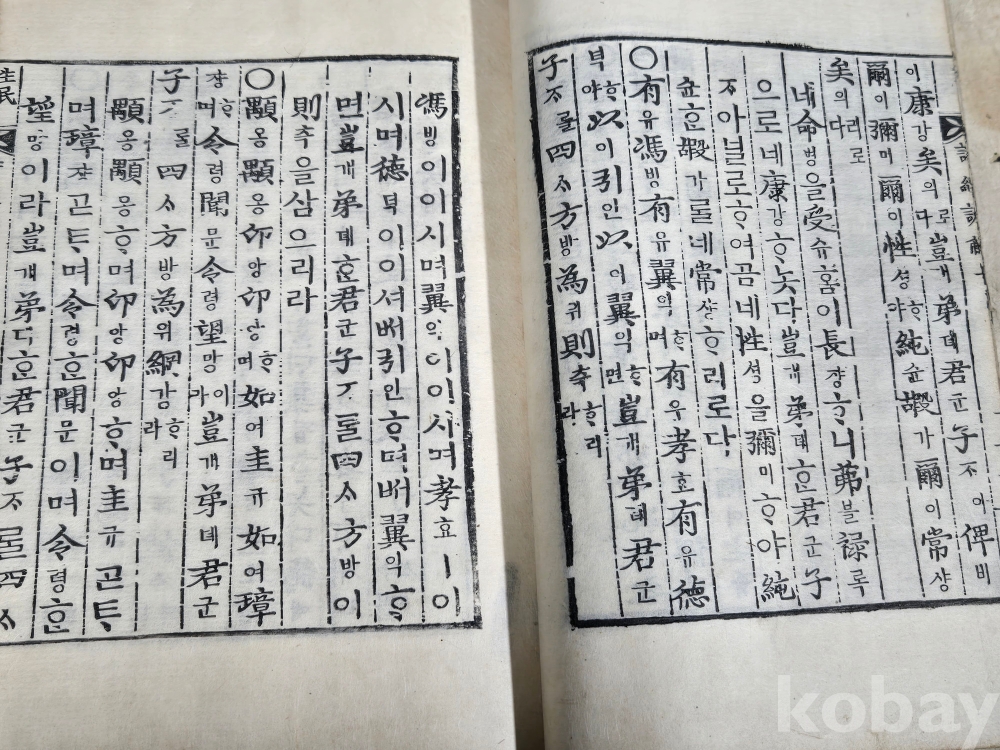 이康강矣의로다豈개弟뎨君군子ᄌᆞ아俾비
爾이彌미爾이性셩ᄒᆞ야純슌嘏가爾이常샹
矣의리로다
네命명을受슈홈이長쟝ᄒᆞ니茀블祿록
으로네康강ᄒᆞ놋다豈개弟뎨ᄒᆞᆫ君군子
ᄌᆞ아널로ᄒᆞ여곰네性셩을彌미ᄒᆞ야純
슌ᄒᆞᆫ嘏가ᄅᆞᆯ네常샹ᄒᆞ리로다
○有유馮빙有유翼익ᄒᆞ며有유孝효有유德
덕ᄒᆞ야以이引인以이翼익ᄒᆞ면豈개弟뎨君군
子ᄌᆞᄅᆞᆯ四ᄉᆞ方방為위則측ᄒᆞ리라
馮빙이이시며翼익이이시며孝효ㅣ이
시며德덕이이셔ᄡᅥ引인ᄒᆞ며ᄡᅥ翼익ᄒᆞ
면豈개弟뎨ᄒᆞᆫ君군子ᄌᆞᄅᆞᆯ四ᄉᆞ方방이
則측을삼으리라
○顒옹顒옹卬앙卬앙ᄒᆞ며如여圭규如여璋
쟝ᄒᆞ며令령聞문令령望망이라豈개弟뎨君군
子ᄌᆞᄅᆞᆯ四ᄉᆞ方방為위綱강ᄒᆞ리라
顒옹顒옹ᄒᆞ며卬앙卬앙ᄒᆞ며圭규ᄀᆞᆮᄐᆞ
며璋쟝ᄀᆞᆮᄐᆞ며令령ᄒᆞᆫ聞문이며令령ᄒᆞᆫ
望망이라豈개弟뎨ᄒᆞᆫ君군子ᄌᆞᄅᆞᆯ四ᄉᆞ
生民
kobay